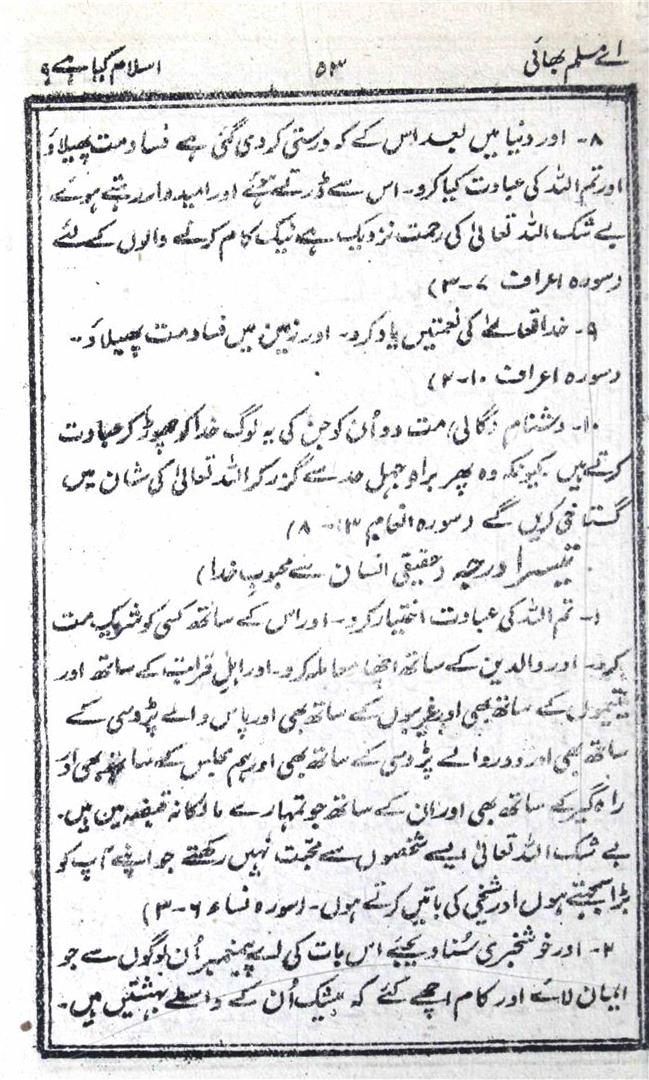 اے مسلم بھائی ۵۳ اسلام کیا ہے؟
۸- اور دنیا میں بعد اس کے کہ درستی کردی گئی ہے فساد مت پھیلاؤ
اور تم اللہ کی عبادت کیا کرو۔ اس سے ڈرتے ہوئے اور امیدوار رہتے ہوئے
بے شک اللہ تعالیٰ کی رحمت نزدیک ہے نیک کام کرنے والوں کے لئے
(سورہ اعراف ۷-۳)
۹- خدا تعالےٰ کی نعمتیں یاد کرو۔ اور زمین میں فساد مت پھیلاؤ۔
(سورہ اعراف ۱۰-۲)
۱۰- دشنام (گالی) مت دو اُن کو جن کی یہ لوگ خدا کو چھوڑ کر عبادت
کرتے ہیں کیونکہ وہ پھر براہ جہل حد سے گزر کر اللہ تعالیٰ کی شان میں
گستاخی کریں گے (سورہ انعام ۱۳-۸)
تیسرا درجہ (حقیقی انسان سے محبوب خدا)
۱- تم اللہ کی عبادت اختیار کرو۔ اور اس کے ساتھ کسی کو شریک مت
کرو۔ اور والدین کے ساتھ اچھا معاملہ کرو۔ اور اہل قرابت کے ساتھ اور
یتیموں کے ساتھ بھی اور غریبوں کے ساتھ بھی اور پاس والے پڑوسی کے
ساتھ بھی اور دور والے پڑوسی کے ساتھ بھی اور ہم مجلس کے ساتھ بھی اور
راہ گیر کے ساتھ بھی اور ان کے ساتھ جو تمہارے مالکانہ قبضہ میں ہیں۔
بے شک اللہ تعالیٰ ایسے شخصوں سے محبت نہیں رکھتے جو اپنے آپ کو
بڑا سمجھتے ہوں اور شیخی کی باتیں کرتے ہوں۔ (سورہ نساء ۶-۳)
۲- اور خوشخبری سُنا دیجئے اس بات کی اے پیغمبر اُن لوگوں سے جو
ایمان لائے اور کام اچھے کئے کہ بیشک اُن کے واسطے بہشتیں ہیں۔